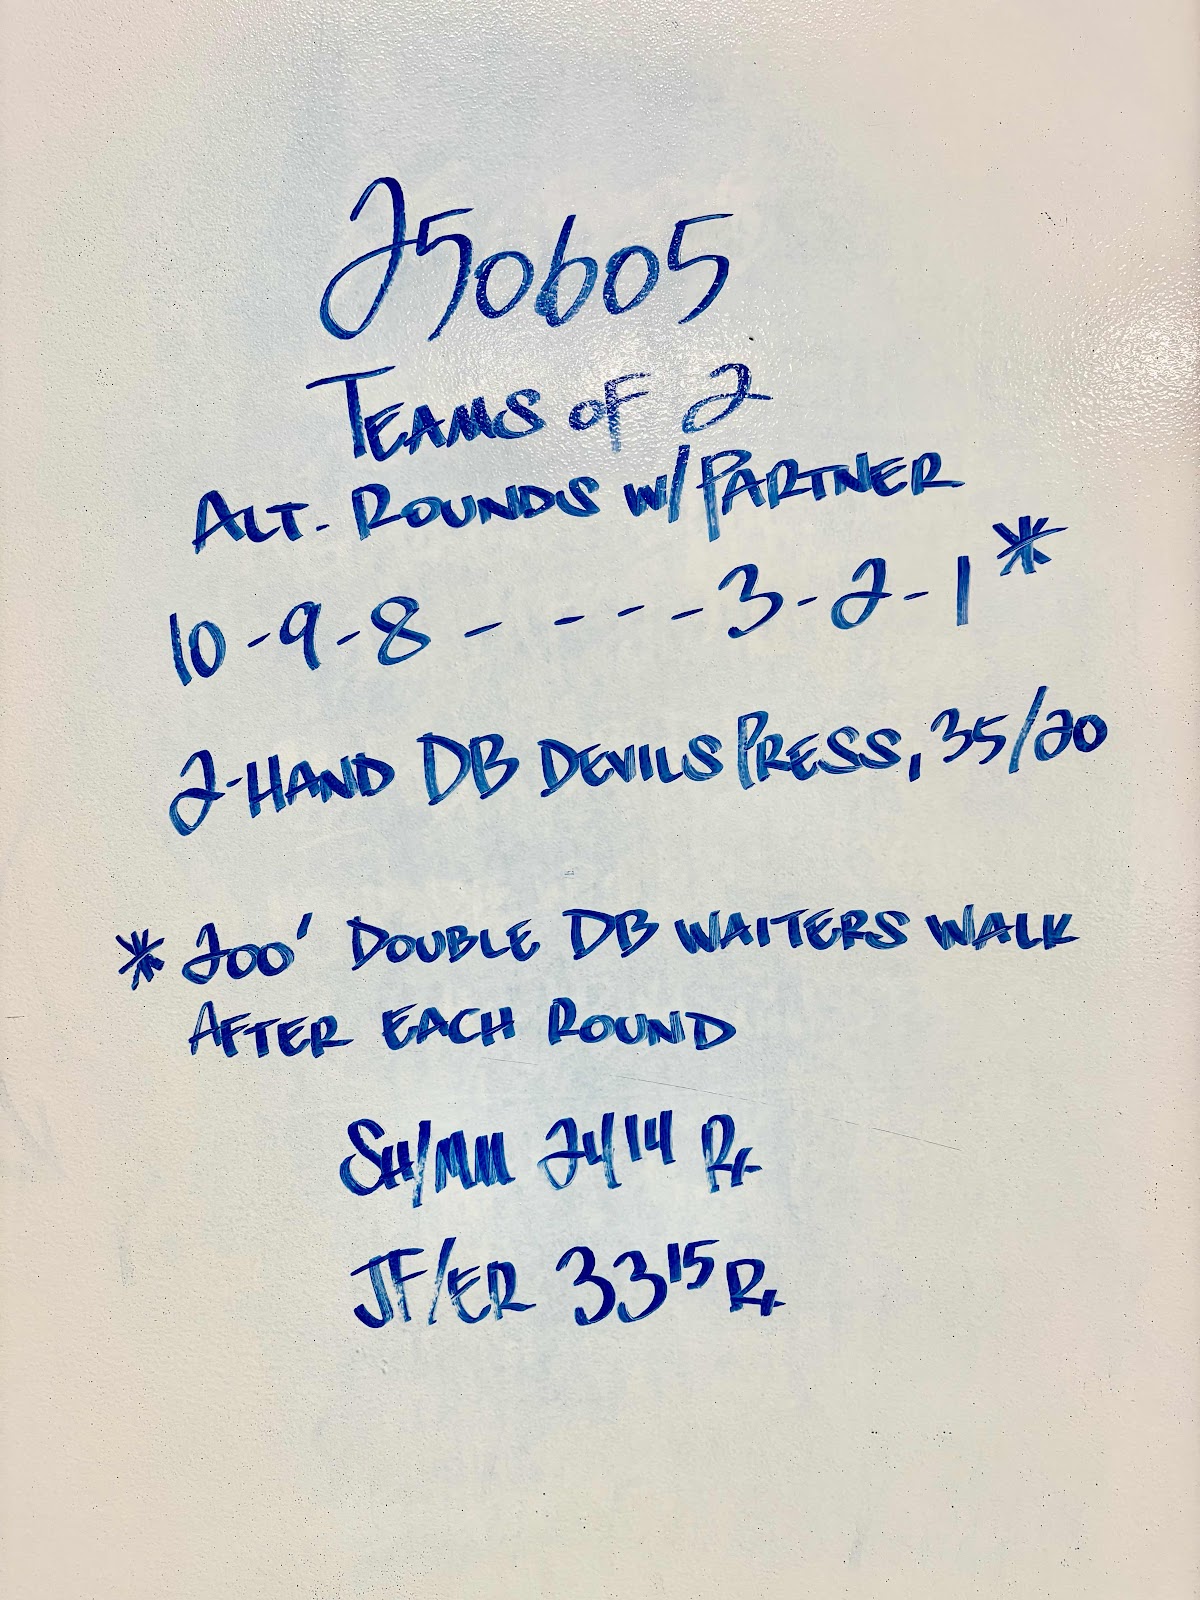 250605
TEAMS OF 2
ALT. ROUNDS W/ PARTNER
10-9-8 - - - - -3-2-1*
2-HAND DB DEVILS PRESS, 35/20
* 200' DOUBLE DB WAITERS WALK
AFTER EACH ROUND
SH/MM 2414 Rx
JF/ER 3315 Rx